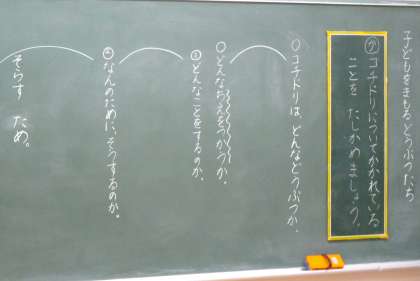 子どもをまもるどうぶつたち
㋐ コチドリについてかかれている
ことを たしかめましょう。
○ コチドリは、どんなどうぶつか。
○ どんなちえをつかうか。
③ どんなことをするのか。
④ なんのために、そうするのか。
そらす ため。